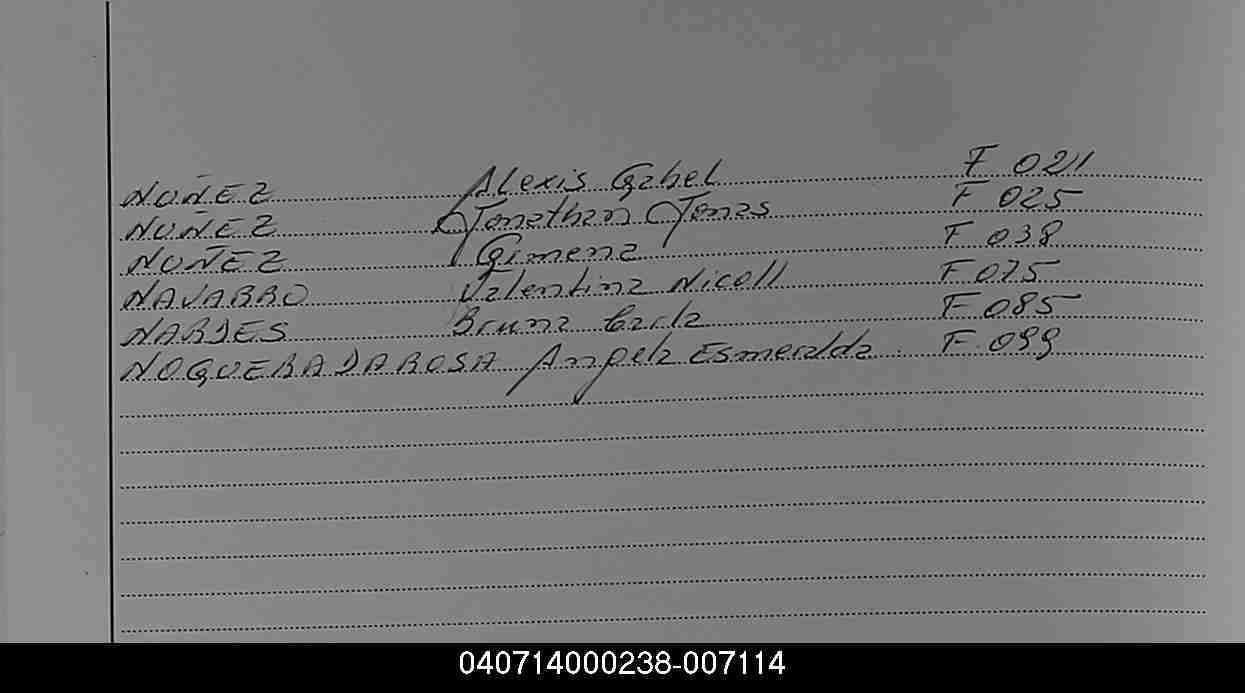 NUÑEZ Alexis Gabel F 021
NUÑEZ Jonathan Jonas F 025
NUÑEZ Gimena F 038
NAVARRO Valentina Nicoll F 075
NARDES Bruna Carla F 085
NOGUERA DA ROSA Angela Esmeralda F. 099
040714000238-007114